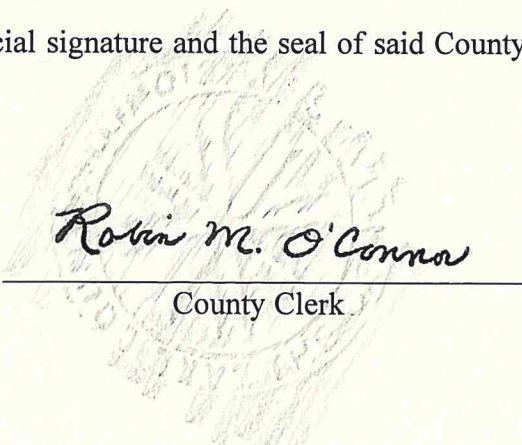 cial signature and the seal of said County
Robin M. O'Connor
County Clerk